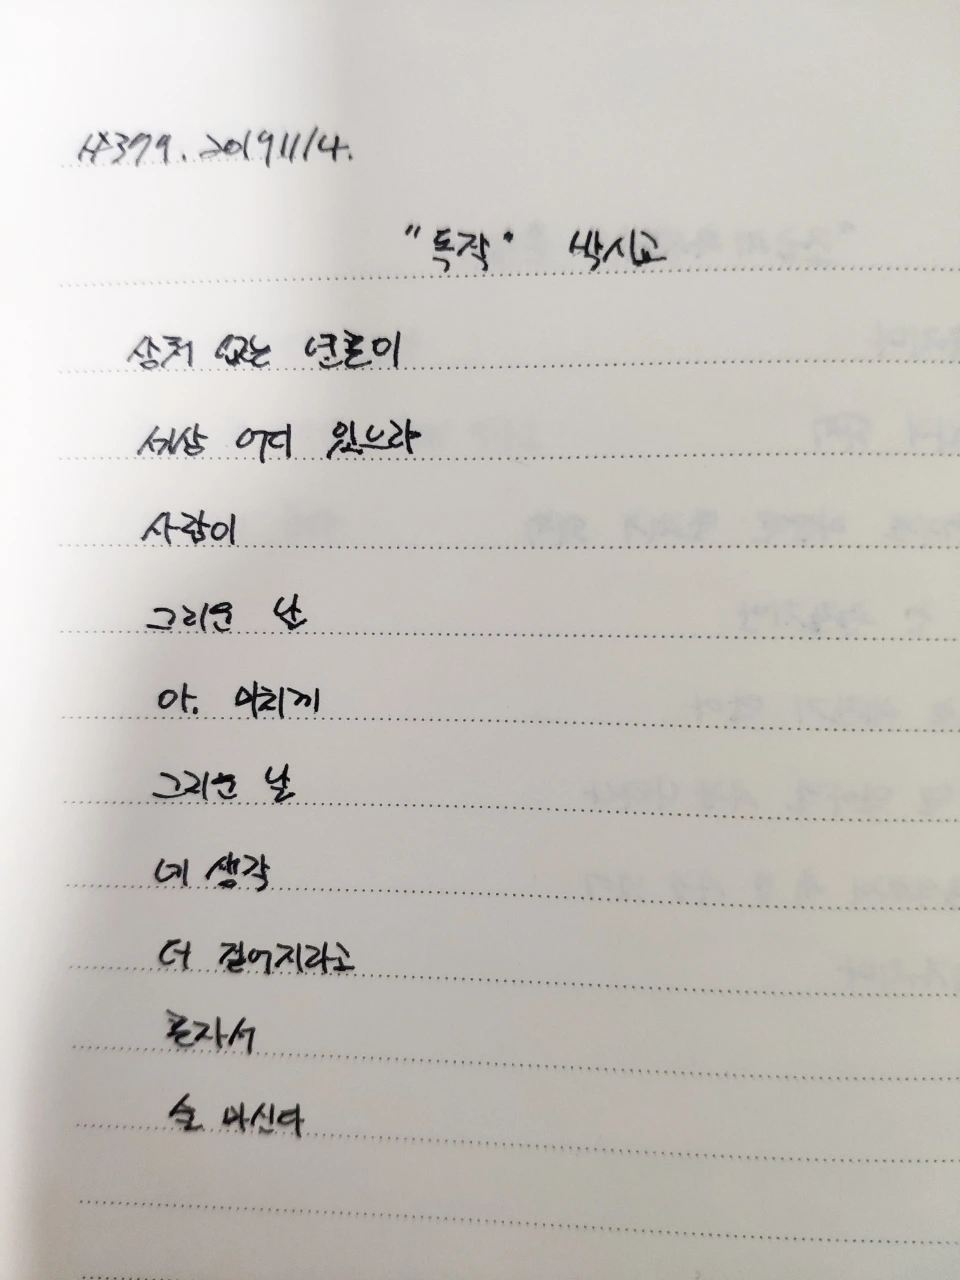 #379. 20191114.
"독작" 박시교
상처 없는 영혼이
세상 어디 있으랴
사람이
그리운 날
아, 미치게
그리운 날
네 생각
더 짙어지라고
혼자서
술 마신다